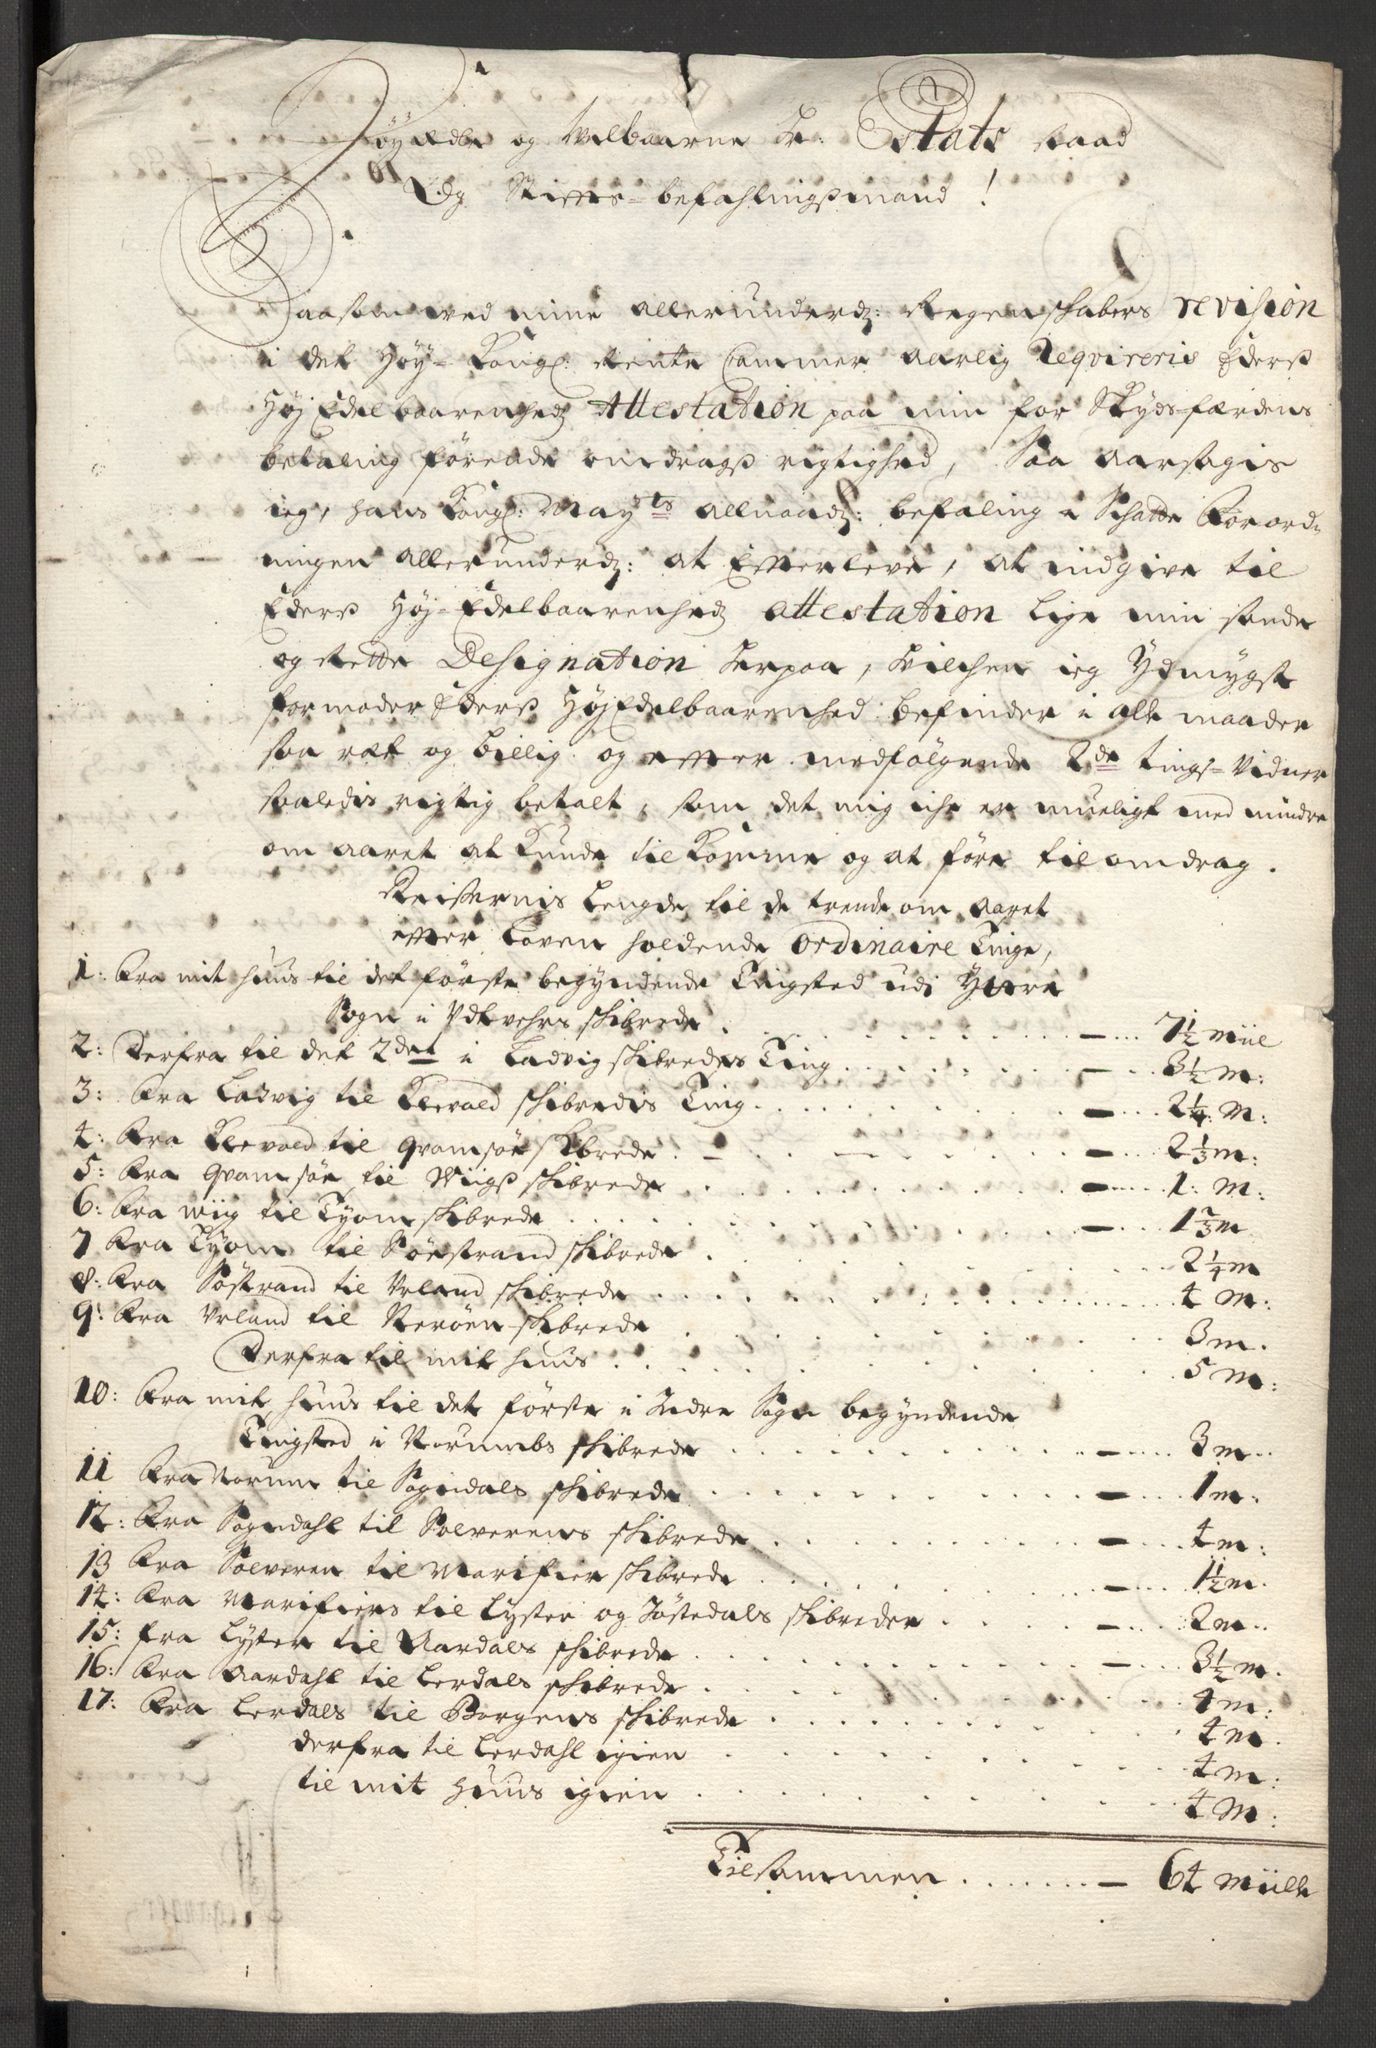 Høyædle og Velbaarne Hr: Estats Raad
Og Stiffts-befahlingsmand!
Saasom ved mine allerunderd: Regenschabers revision
i det Høy-Kongl: Rente Cammer aarlig Reqvireris Eders
HøyEdelbaarenheds Attestation paa min for Skydsfærdens
betaling førende omdrags rigtighed, Saa aarsagis
ieg, hans Kongl: Mayts allnaadg: befaling i Schatte Forord-
ningen allerunderdg: at Effterleve, at indgive til
Eders Høy-Edelbaarenheds attestation lige min sande
og Rette Designation herpaa, hvilchen ieg Ydmygst
formoder Eders HøyEdelbaarenhed befinder i alle maader
saa ræt og billig og effter medfølgende 2de tings-Vidner
saaledis rigtig betalt, som det mig iche er mueligt med mindre
om aaret at kunde tilkomme og at føre til omdrag.
Reisernis Lengde til de trende om aaret
effter Loven holdende Ordinaire Tinge,
1: Fra mit huus til det første begyndende Tingsted udi Yttre
Sogn i Udvehrs schibrede . . . 7 1/2 miil
2: Derfra til det 2det i Ladvig schibredes Ting . . . 3 1/2 m:
3: Fra Ladvig til Klevold schibredis Ting . . . 2 1/4 m:
4: Fra Klevold til Qvamsøe skibrede . . . 2 1/3 m:
5: Fra Qvamsøe til Wiigs schibrede . . . 1: m:
6: Fra wiig til Tyom schibrede . . . 1 2/3 m
7 Fra Tyom til Sørstrand schibrede . . . 2 1/4 m
8: Fra Søstrand til Urland schibrede . . . 4 m:
9: Fra Urland til Nerøen schibrede . . . 3 m.
Derfra til mit huus . . . 5 m:
10: Fra mit huus til det første i Indre Sogn begyndende
Tingsted i Norumbs schibrede . . . 3 m.
11 Fra Norum til Sogndals schibrede . . . 1 m:
12: Fra Sogndahl til Solverens schibrede . . . 4 m:
13 Fra Solveren til Marifier schibrede . . . 1 1/2 m.
14: Fra Marifiers til Lyster og Jostedals schibreder . . . 2 m.
15: fra Lyster til Aardals schibrede . . . 3 1/2 m.
16: Fra Aardahl til Lerdals schibrede . . . 4 m:
17: Fra Lerdals til Borgens schibrede . . . 4 m.
derfra til Lerdahl igien . . . 4 m:
til mit huus igien . . . 4 m:
Tilsammen . . . 64 miille